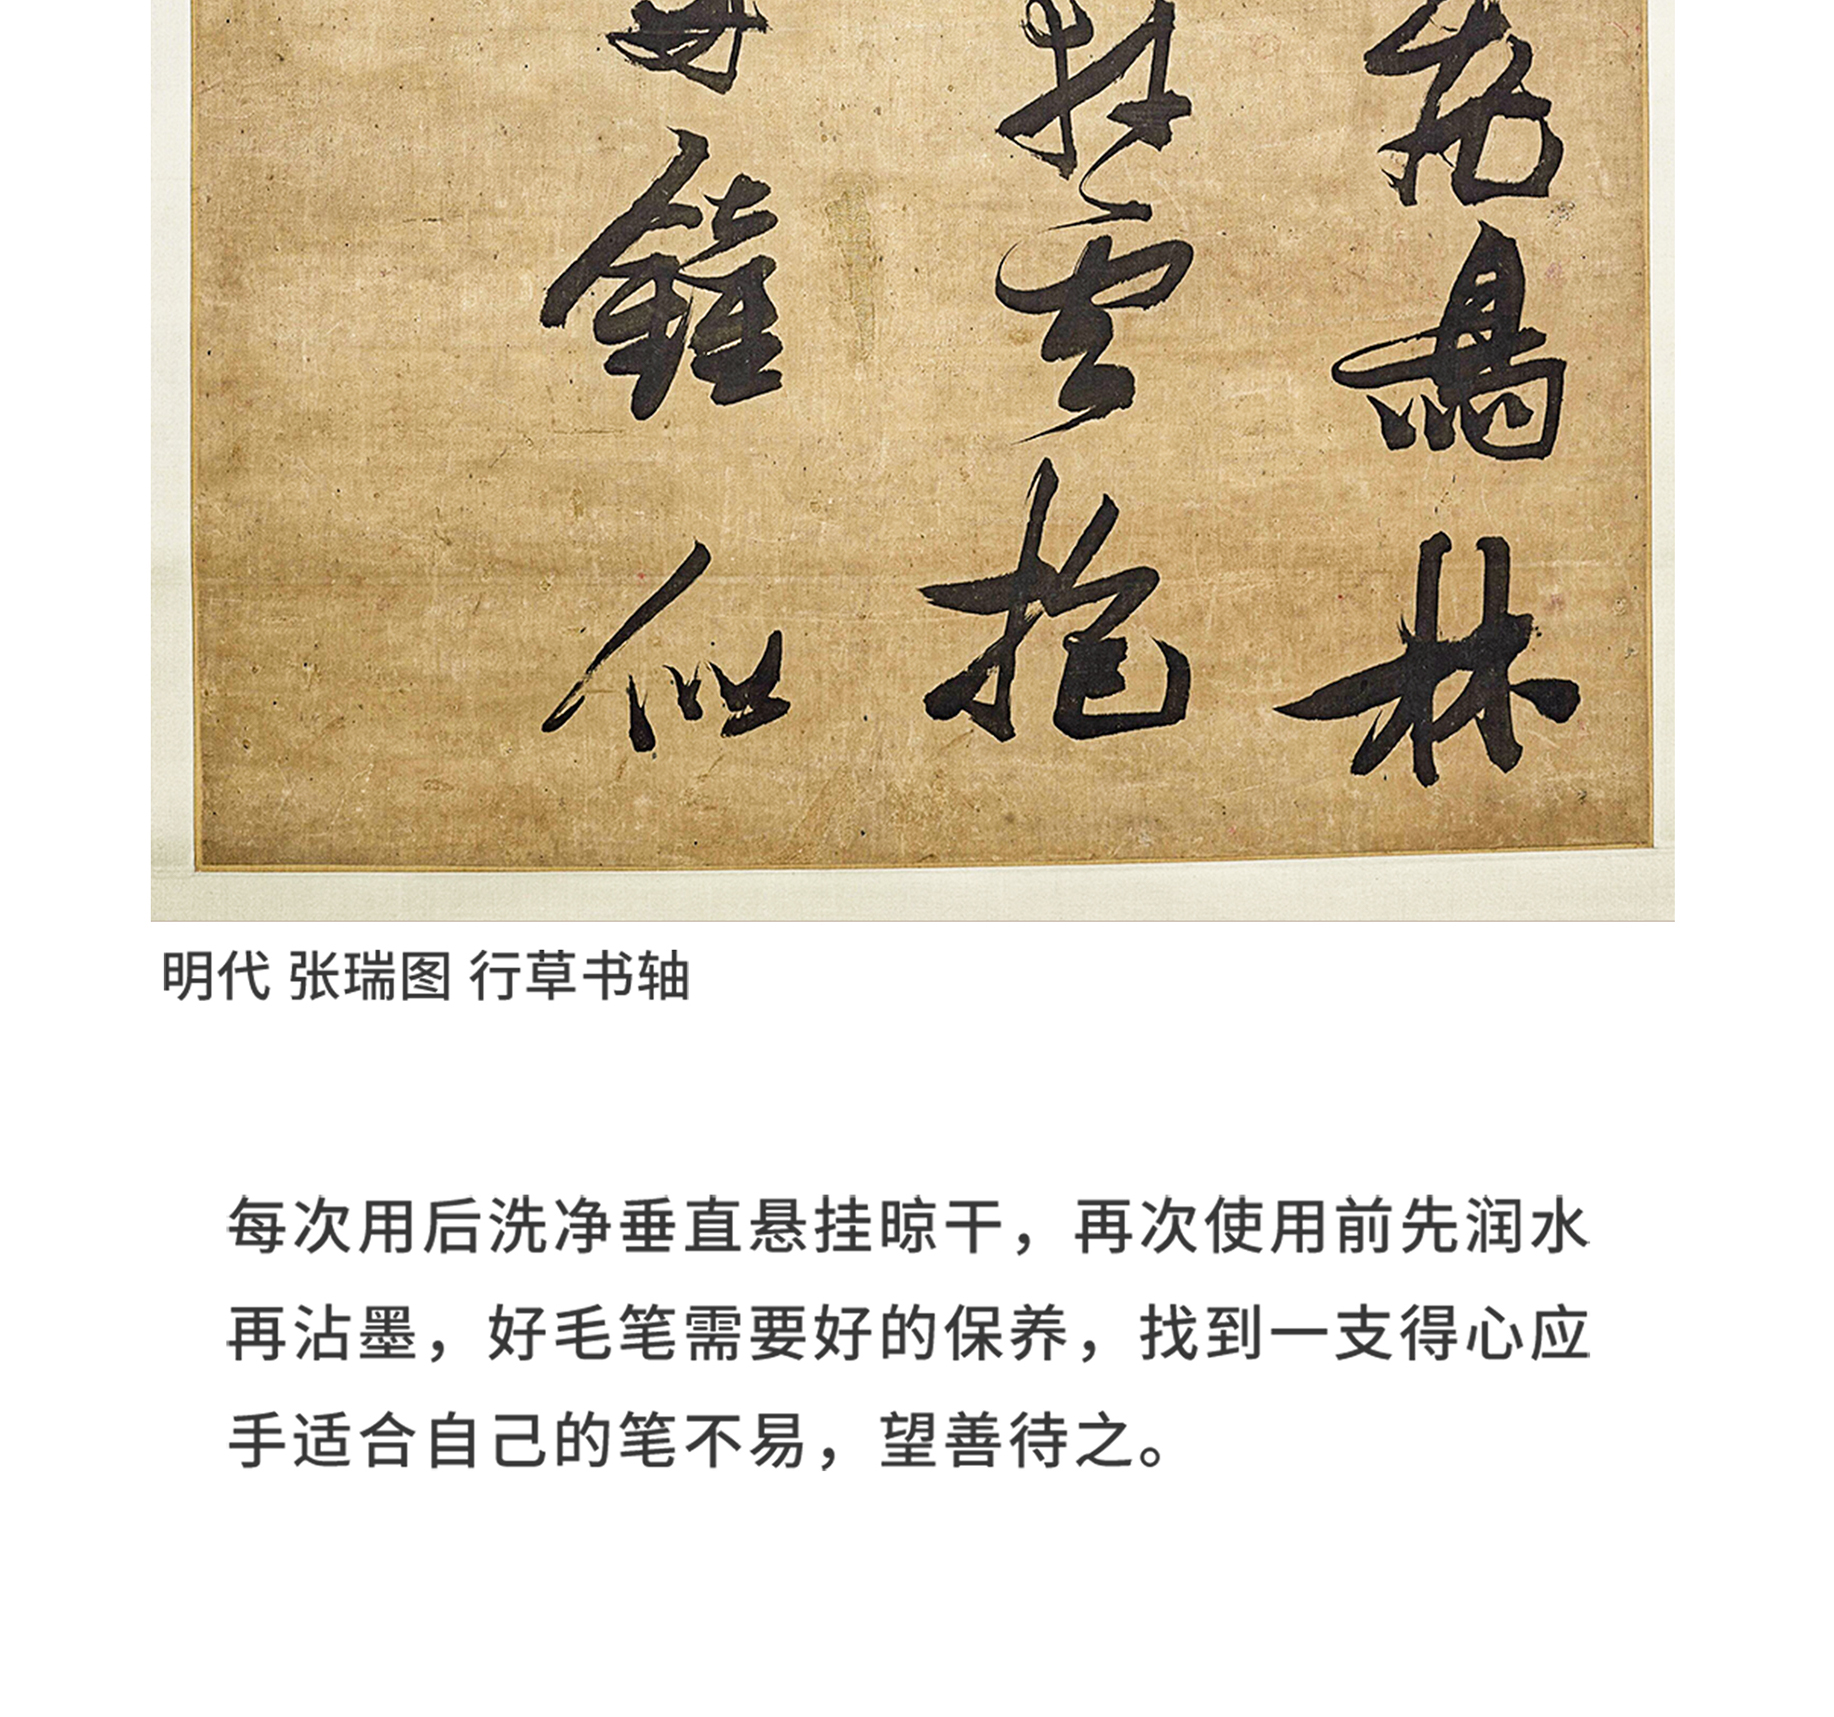 林
抱
鐘
似
明代 张瑞图 行草书轴
每次用后洗净垂直悬挂晾干，再次使用前先润水
再沾墨，好毛笔需要好的保养，找到一支得心应
手适合自己的笔不易，望善待之。